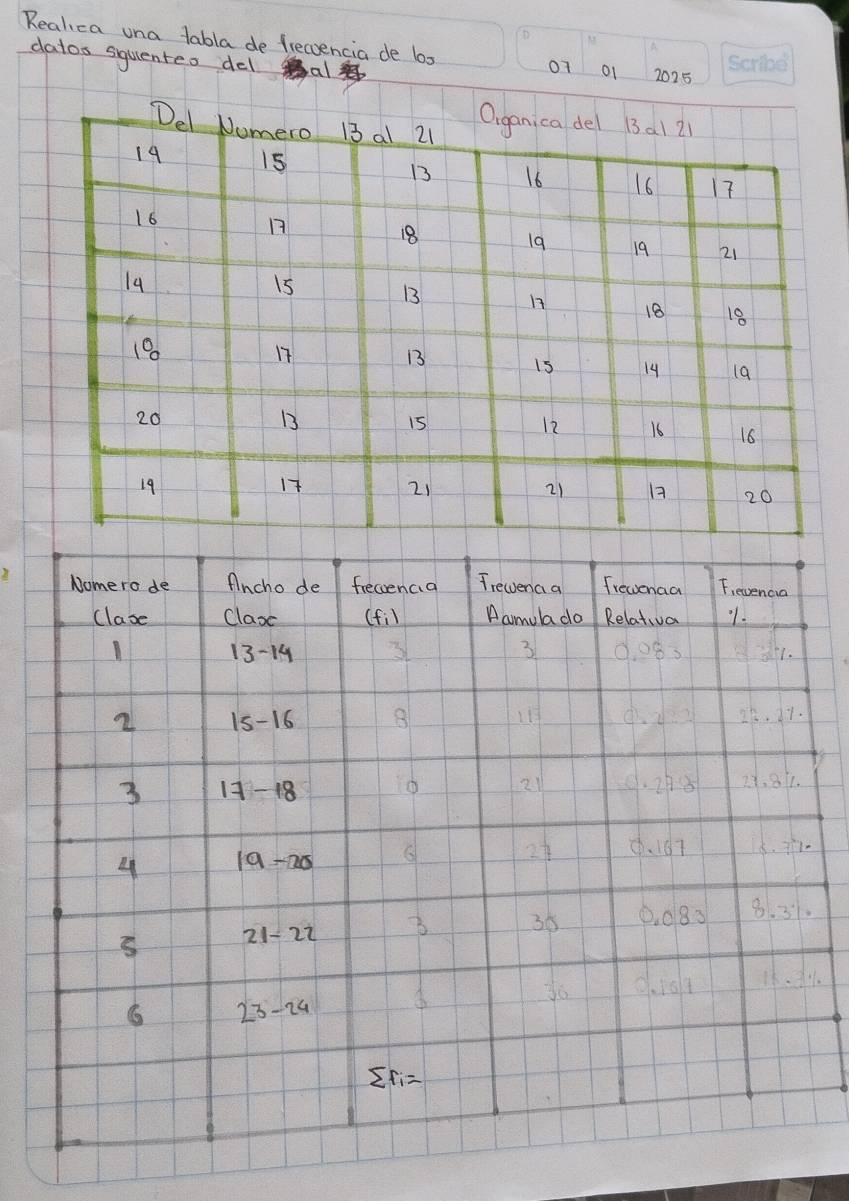 Realica una tabla de frecuencia de los
datos siguientes del al
07 01 2025 Scribe
Del Numero 13 al 21 Organica del 13 al 21
19 15 13 16 16 17
16 17 18 19 19 21
14 15 13 17 18 18
18 17 13 15 14 19
20 13 15 12 16 16
19 17 21 21 17 20
Numero de Ancho de frecuencia Frecuencia Frecuencia Frecuencia
Clase Clase (fi) Acmulado Relativa %.
1 13-14 3 3 0.083
2 15-16 8 11 22.2%.
3 17-18 10 21 0.278 27.8%.
4 19-20 6 27 0.167
5 21-22 3 30 0.083 8.3%.
6 23-24 36
Σfi=